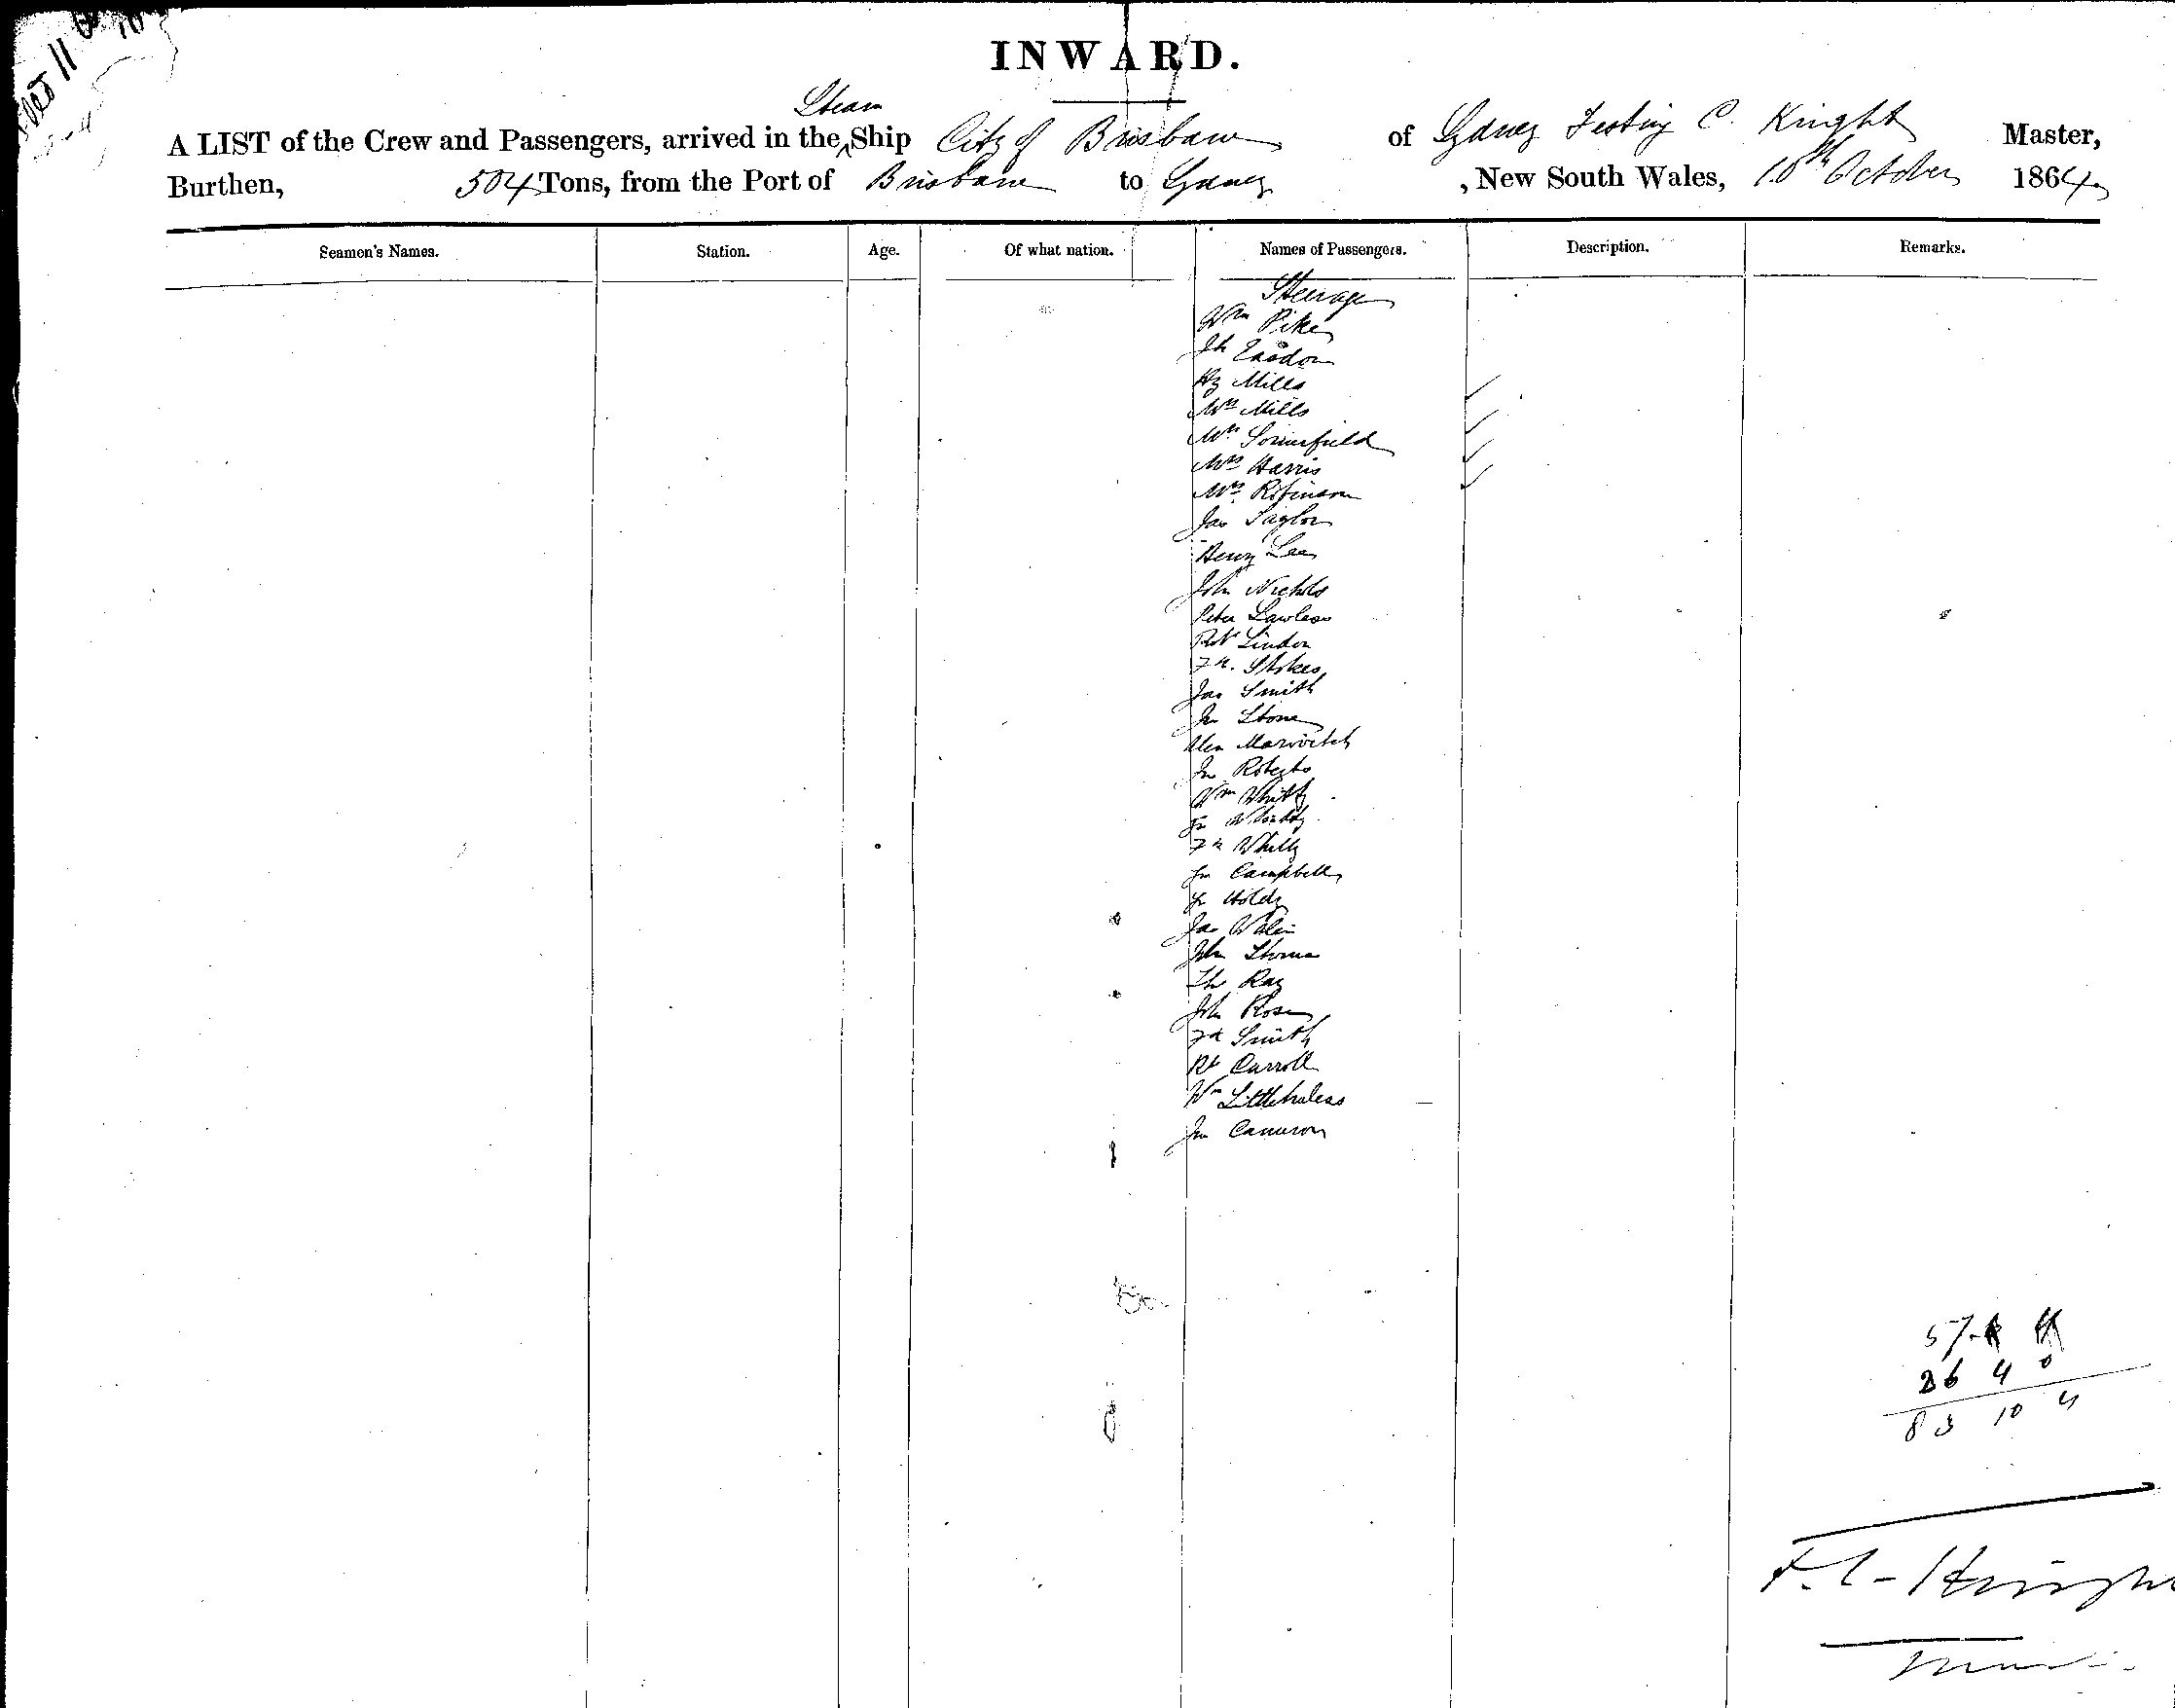 INWARD.
Steam
A LIST of the Crew and Passengers, arrived in the Ship City of Brisbane of Sydney Festing C. Knight Master,
Burthen, 504 Tons, from the Port of Brisbane to Sydney, New South Wales, 10th October 1864
Seamen's Names. Station. Age. Of what nation. Names of Passengers. Description. Remarks.
Steerage
Wm Pike
Jh Easdon
Hy Mills
Mrs Mills
Mrs Somerfield
Mrs Harris
Mrs Robinson
Jas Taylor
Henry Lee
John Nichols
Peter Lawless
Robt Lindon
Fk. Stokes
Jas Smith
Jn Stone
Alex
Jn Roberts
Wm Whitty
Jn
Fk
Jn Campbell
Jn
Jas
John
Th Ray
John Rose
Fk Smith
Rt Carroll
Wm Littlehaless
Jn Cameron
57
26 4 0
83 10 4
F. C. Knight